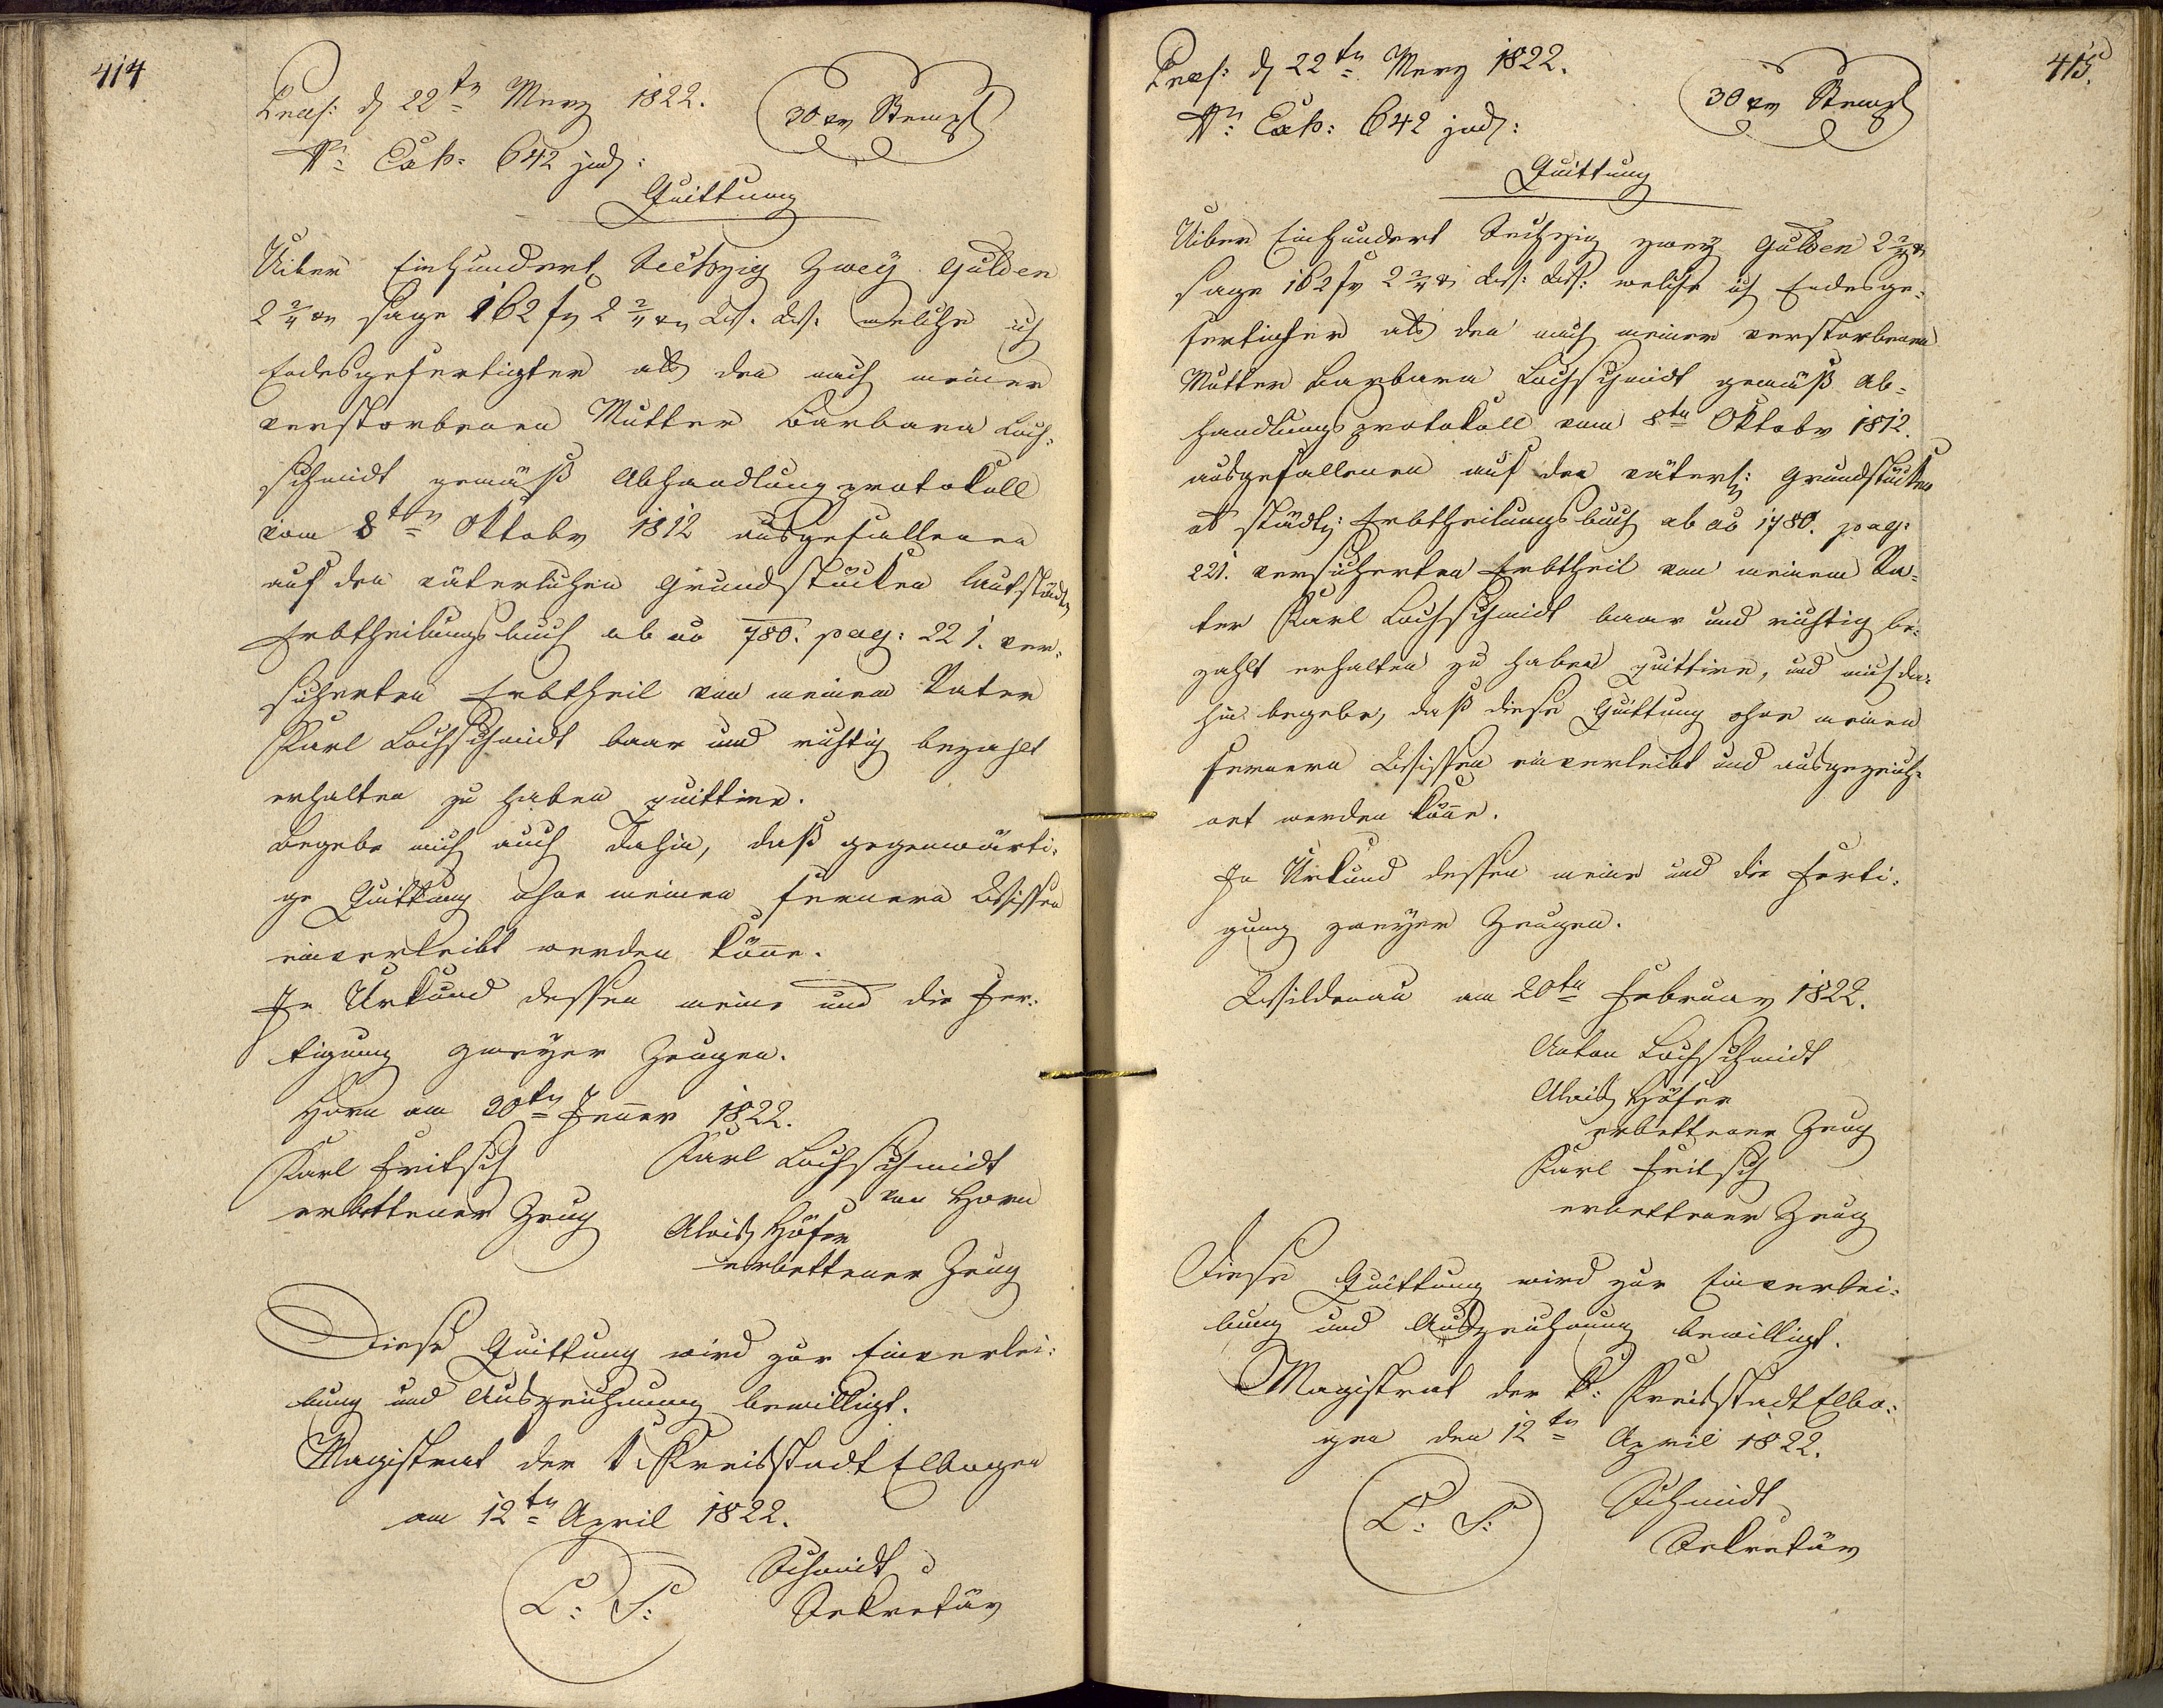 414
Praes: d 22tn Merz 1822.
30 xr Stempl
Nr: Exh: 642 jud:
Quittung
Uiber Einhundert Sechzig Zwey Gulden
2 2/4 xr sage 162 fr 2 2/4 xr W. W: welche ich
Endesgefertigter als den nach meiner
verstorbenen Mutter Barbara Loch-
schmidt gemäß Abhandlungsprotokoll
vom 8tn Oktobr 1812 ausgefallenen
auf den väterlichen Grundstücken laut städt
Erbtheilungsbuch ab ao 780. pag: 221. ver-
sicherten Erbtheil von meinem Vater
Karl Lochschmidt baar und richtig bezahlt
erhalten zu haben quittire.
Begebe mich auch dahin, daß gegenwärti-
ge Quittung ohne meinen fernern Wissen
einverleibt werden könne.
In Urkund dessen meine und die Fer-
tigung zweyer Zeugen.
Horn am 20tn Jenner 1822.
Karl Lochschmidt
von Horn
Karl Fritsch
erbettener Zeug
Alois Höfer
erbettener Zeug
Diese Quittung wird zur Einverlei-
bung und Auszeichnung bewilligt.
Magistrat der k: Kreisstadt Elbogen
am 12tn April 1822.
L: S:
Schmidt
Sekretär
415.
Praes: d 22tn Merz 1822.
30 xr Stempl
Nr: Exh: 642 jud:
Quittung
Uiber Einhundert Sechzig zwey Gulden 2 2/4 xr
sage 162 fr 2 2/4 xr W: W: welche ich Endesge-
fertigter als den nach meiner verstorbenen
Mutter Barbara Lochschmidt gemäß Ab-
handlungsprotokoll vom 8tn Oktobr 1812.
ausgefallenen auf den väterl: Grundstücken
ob städt: Erbtheilungsbuch ab ao 1780. pag:
221. versicherten Erbtheil von meinem Va-
ter Karl Lochschmidt baar und richtig be-
zahlt erhalten zu haben quittire, und mich da-
hin begebe, daß diese Quittung ohne meinen
fernern Wissen einverleibt und ausgezeich-
net werden könne.
In Urkund dessen meine und die Ferti-
gung zweyer Zeugen.
Wildenau am 20tn Februar 1822.
Anton Lochschmidt
Alois Höfer
erbettener Zeug
Karl Fritsch
erbettener Zeug
Diese Quittung wird zur Einverlei-
bung und Auszeichnung bewilligt.
Magistrat der k: Kreisstadt Elbo-
gen den 12tn April 1822.
L: S:
Schmidt
Sekretär